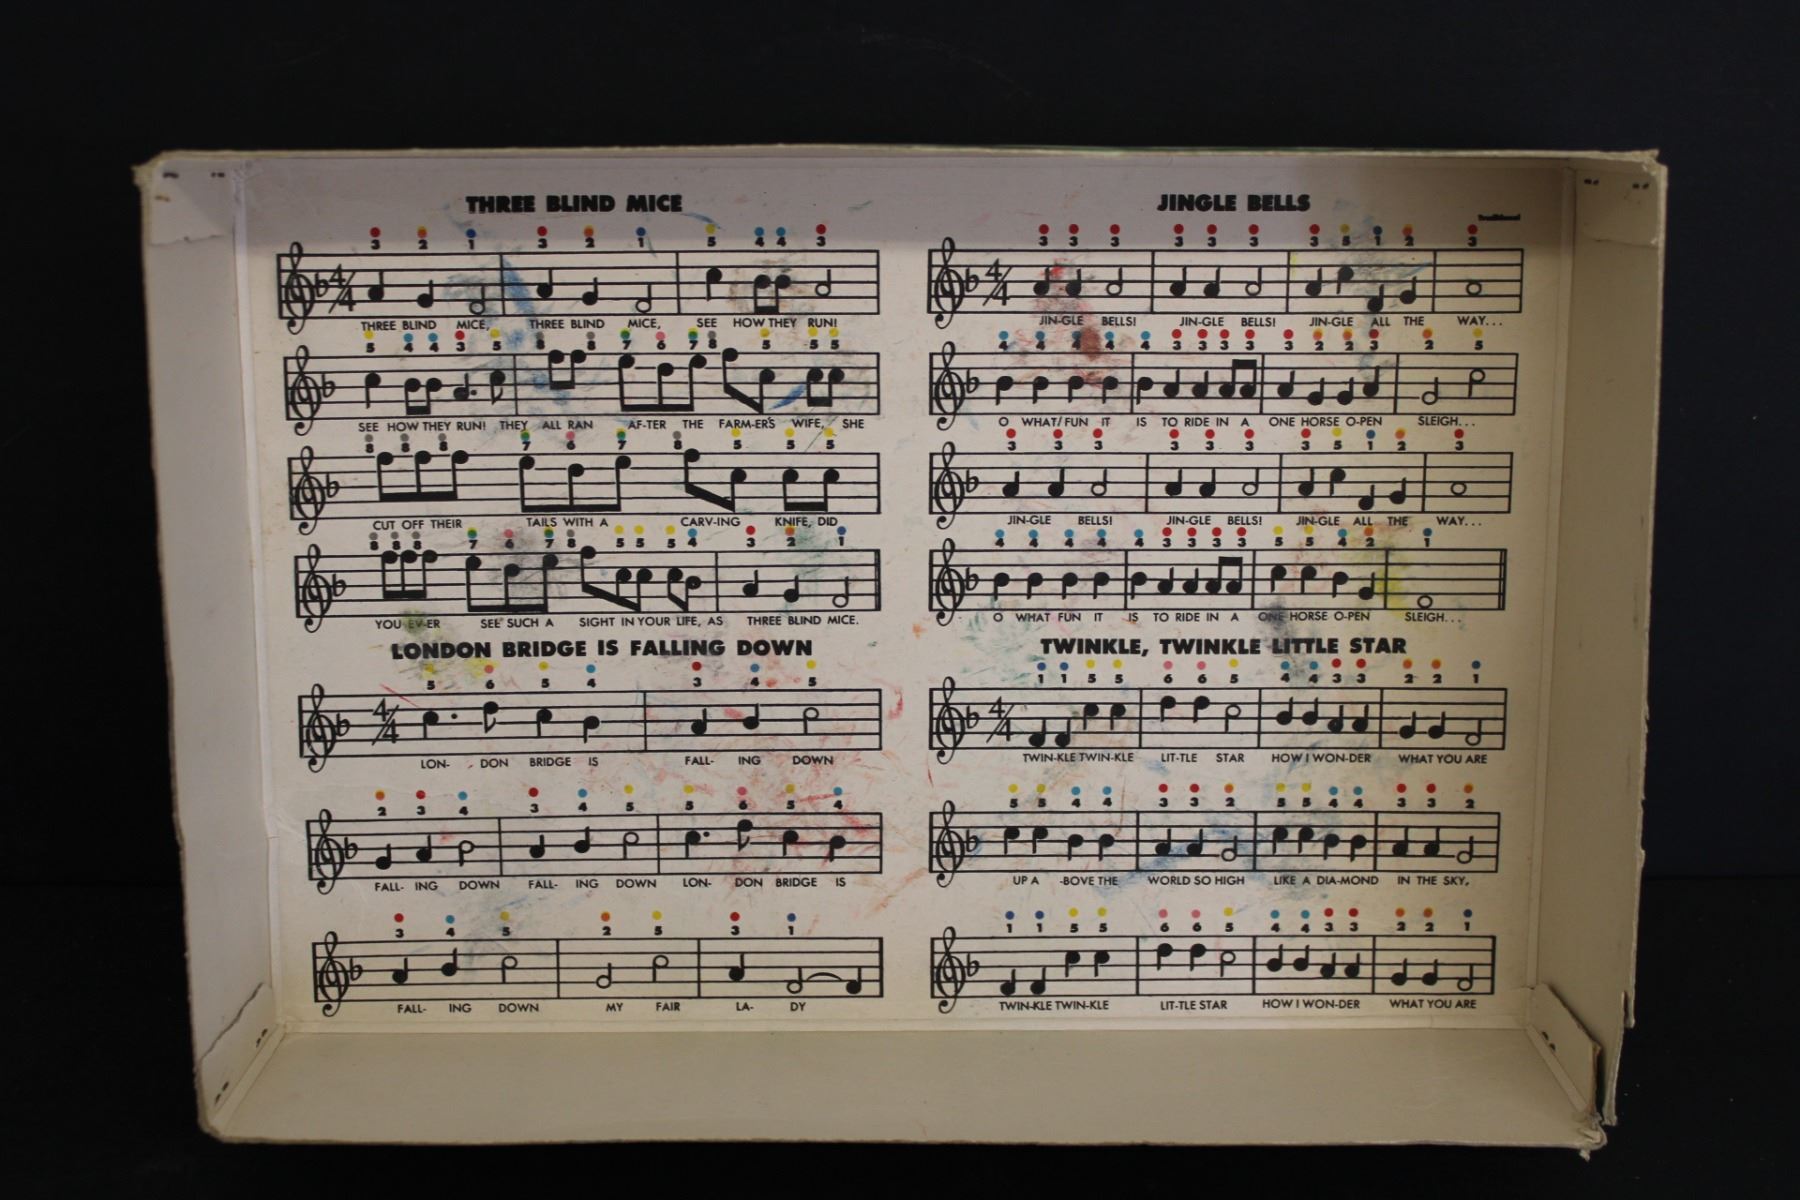 THREE BLIND MICE
3 2 1 3 2 1 5 4 4 3
4/4
THREE BLIND MICE, THREE BLIND MICE, SEE HOW THEY RUN!
5 4 4 3 5 8 8 7 6 7 8 5 5 5
SEE HOW THEY RUN! THEY ALL RAN AF-TER THE FARM-ER'S WIFE, SHE
8 8 8 7 6 7 8 5 5 5
CUT OFF THEIR TAILS WITH A CARV-ING KNIFE, DID
8 8 8 7 6 7 8 5 5 5 4 3 2 1
YOU EV-ER SEE SUCH A SIGHT IN YOUR LIFE, AS THREE BLIND MICE.
LONDON BRIDGE IS FALLING DOWN
5 6 5 4 3 4 5
4/4
LON- DON BRIDGE IS FALL- ING DOWN
2 3 4 3 4 5 5 6 5 4
FALL- ING DOWN FALL- ING DOWN LON- DON BRIDGE IS
3 4 5 2 5 3 1
FALL- ING DOWN MY FAIR LA- DY
JINGLE BELLS
Traditional
3 3 3 3 3 3 3 5 1 2 3
4/4
JIN-GLE BELLS! JIN-GLE BELLS! JIN-GLE ALL THE WAY...
4 4 4 4 4 3 3 3 3 3 2 2 3 2 5
O WHAT FUN IT IS TO RIDE IN A ONE HORSE O-PEN SLEIGH...
3 3 3 3 3 3 3 5 1 2 3
JIN-GLE BELLS! JIN-GLE BELLS! JIN-GLE ALL THE WAY...
4 4 4 4 4 3 3 3 3 5 5 4 2 1
O WHAT FUN IT IS TO RIDE IN A ONE HORSE O-PEN SLEIGH...
TWINKLE, TWINKLE LITTLE STAR
1 1 5 5 6 6 5 4 4 3 3 2 2 1
4/4
TWIN-KLE TWIN-KLE LIT-TLE STAR HOW I WON-DER WHAT YOU ARE
5 5 4 4 3 3 2 5 5 4 4 3 3 2
UP A -BOVE THE WORLD SO HIGH LIKE A DIA-MOND IN THE SKY,
1 1 5 5 6 6 5 4 4 3 3 2 2 1
TWIN-KLE TWIN-KLE LIT-TLE STAR HOW I WON-DER WHAT YOU ARE